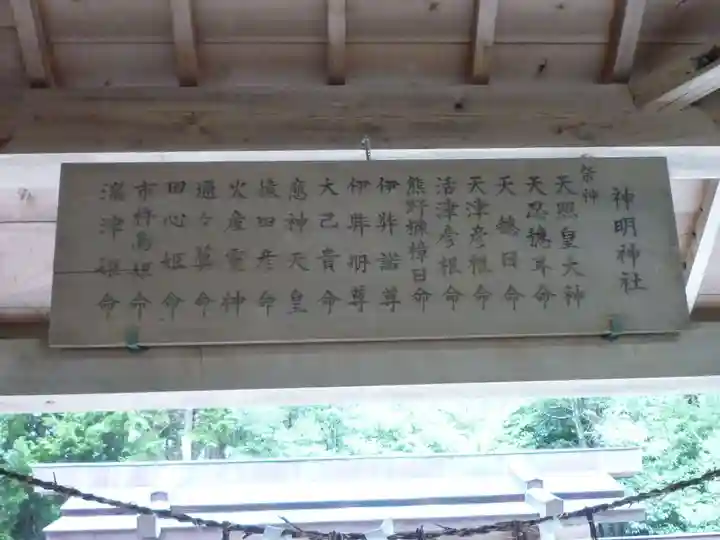 神明神社
祭神
天照皇大神
天忍穂耳命
天穂日命
天津彦根命
活津彦根命
熊野櫲樟日命
伊弉諾尊
伊弉册尊
大己貴命
應神天皇
猿田彦命
火産霊神
迩々藝命
田心姫命
市杵島姫命
湍津姫命